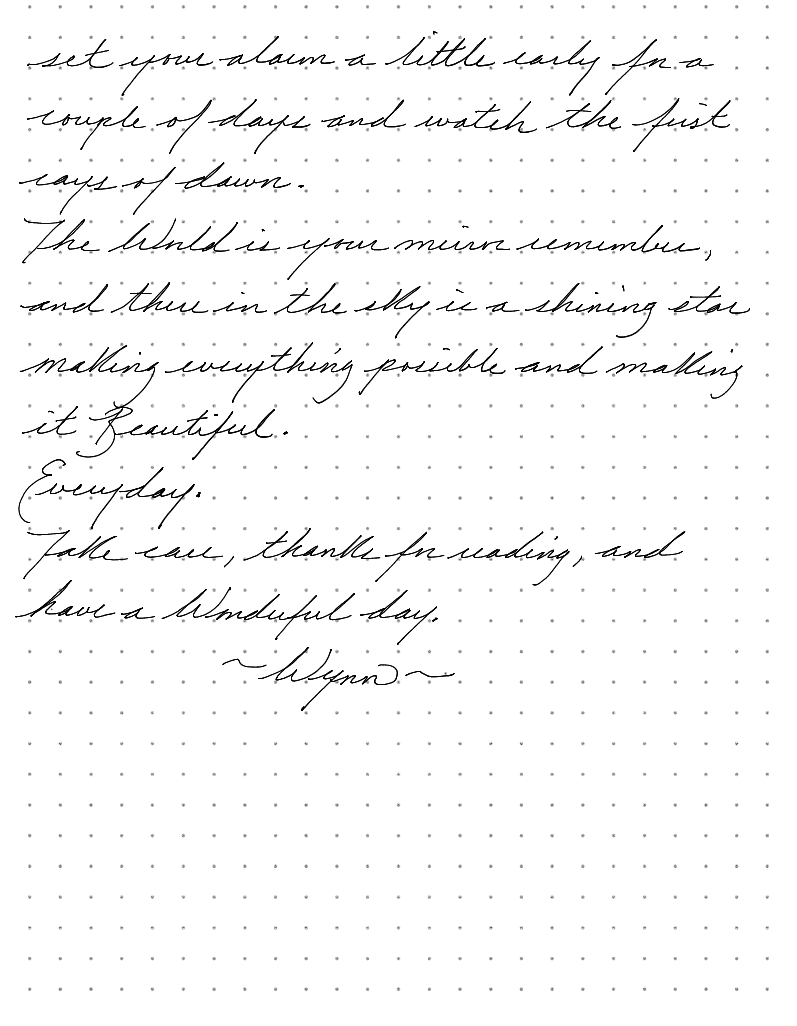 set your alarm a little early for a
couple of days and watch the first
rays of dawn.
The World is your mirror remember,
and there in the sky is a shining star
making everything possible and making
it Beautiful.
Everyday.
Take care, thanks for reading, and
have a Wonderful day.
~Wynn~